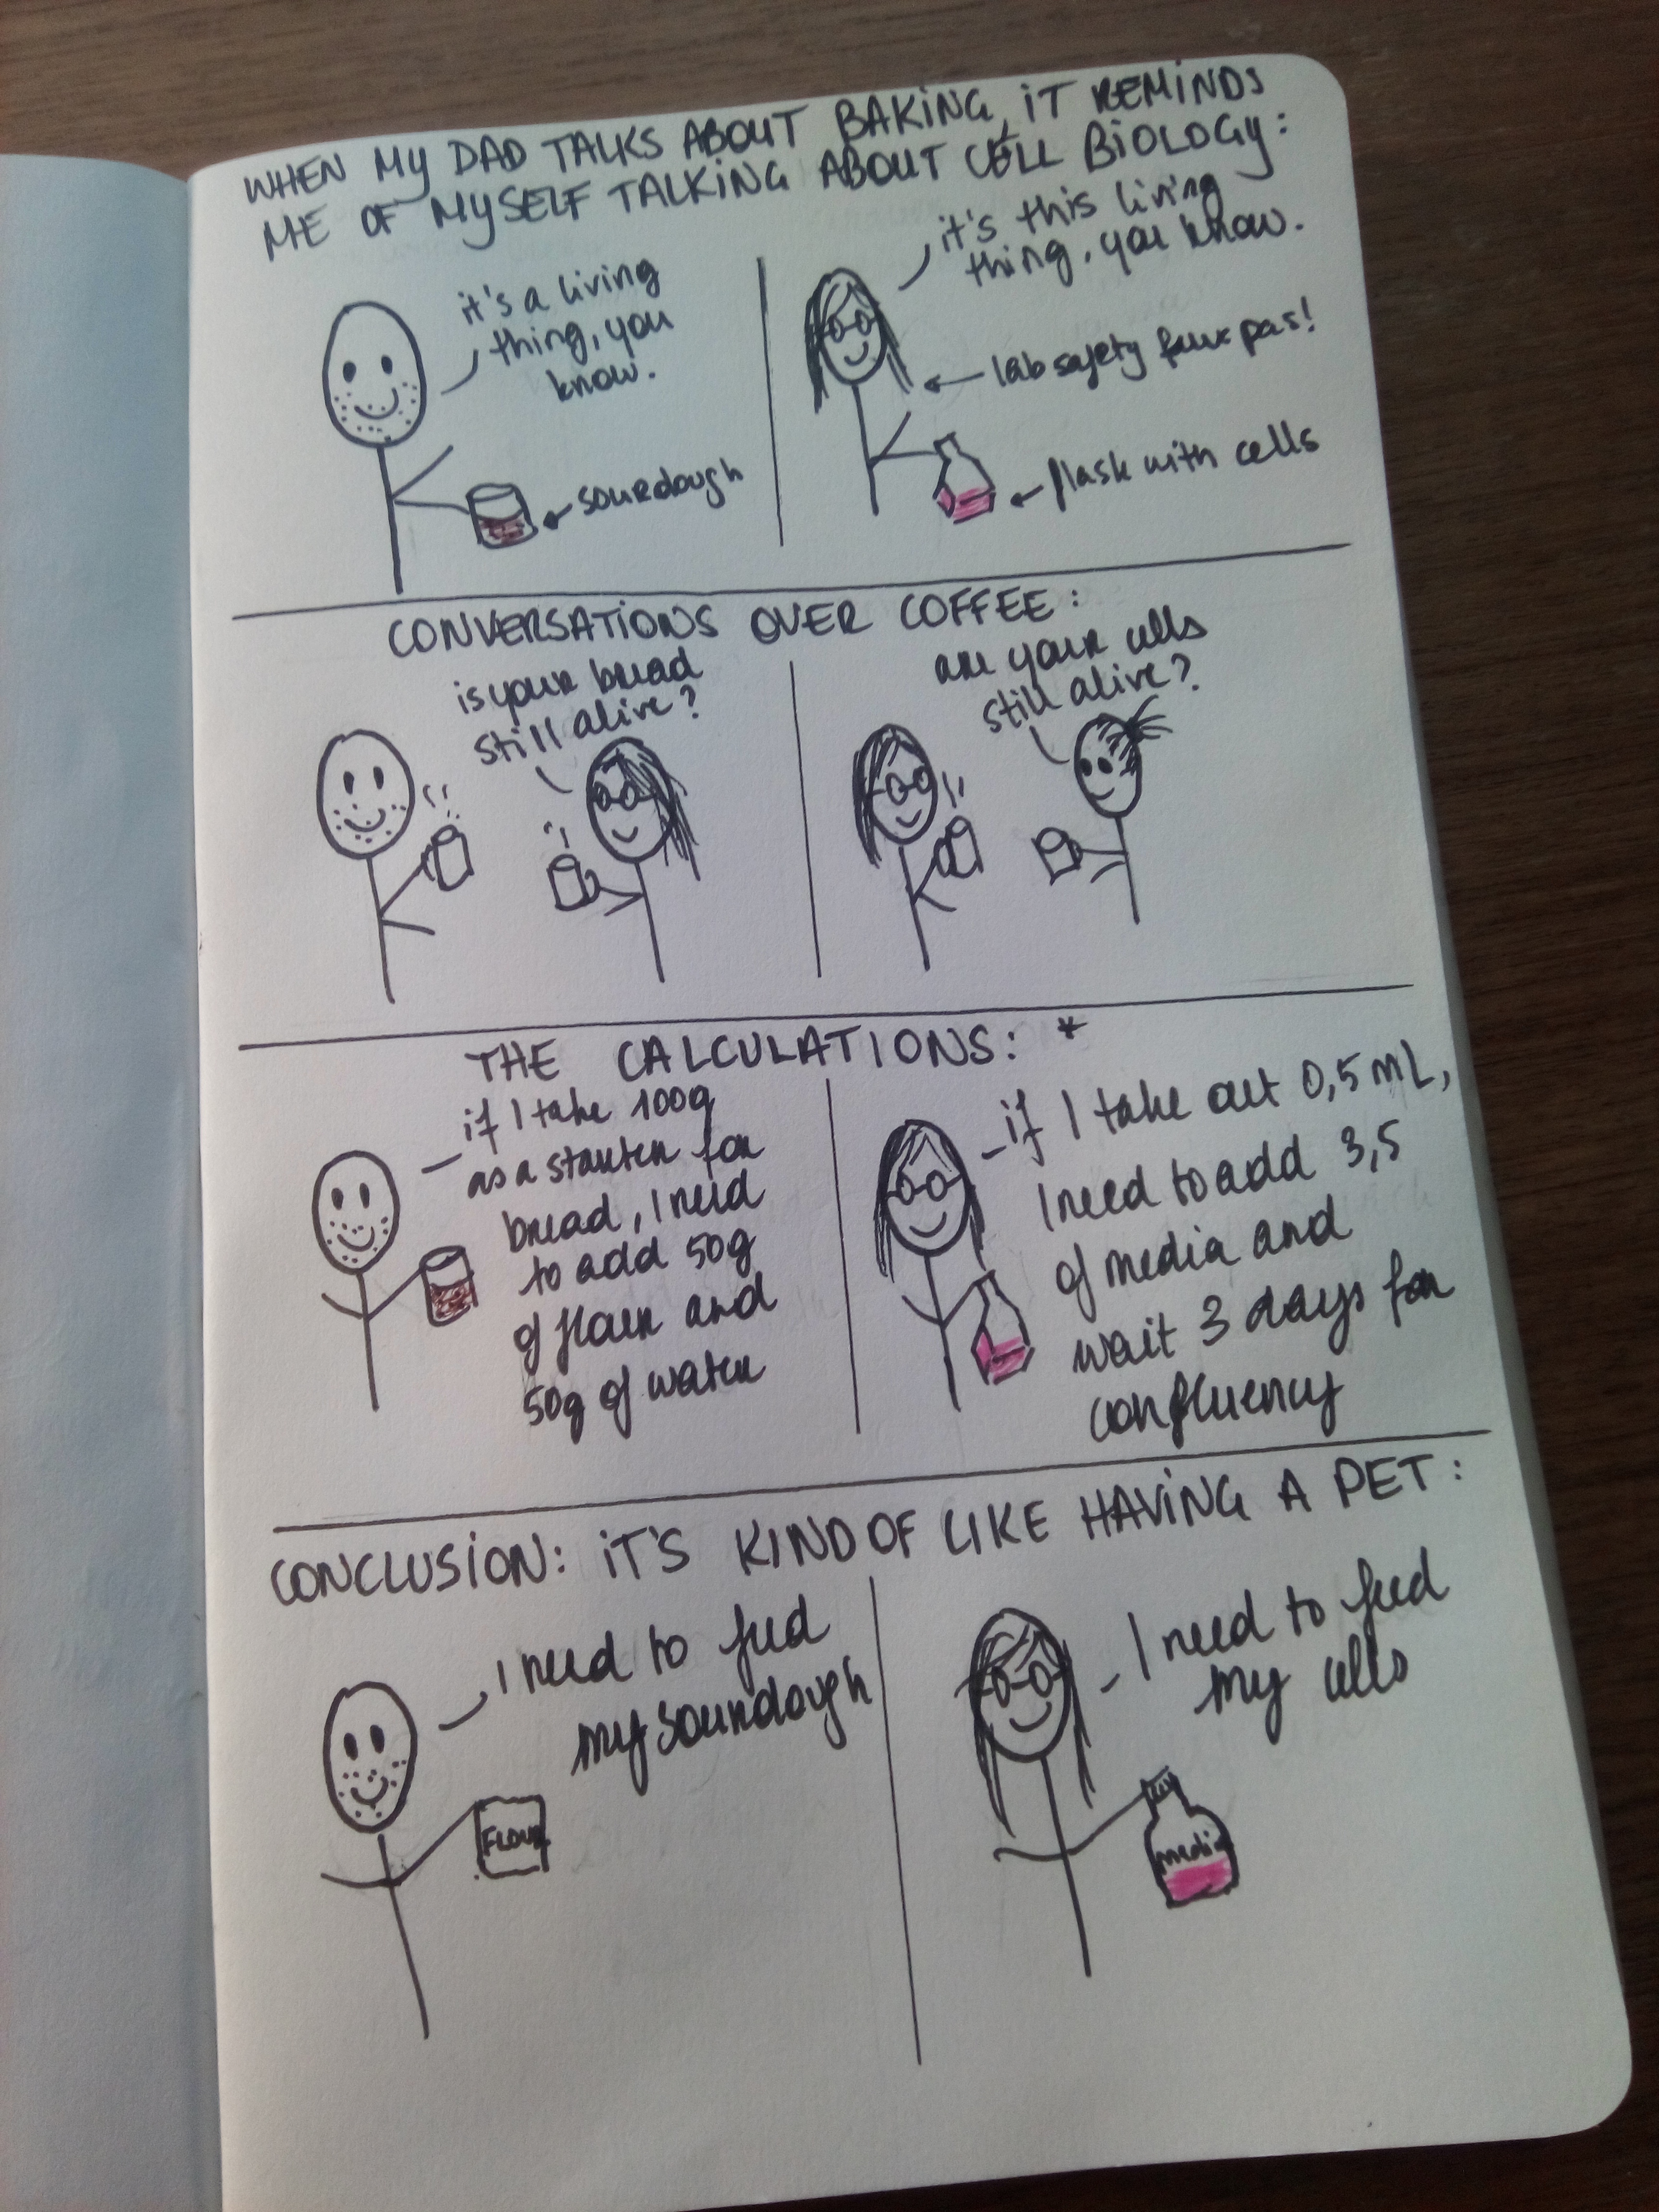 WHEN MY DAD TALKS ABOUT BAKING, IT REMINDS
ME OF MYSELF TALKING ABOUT CELL BIOLOGY:
it's a living
thing, you
know.
sourdough
it's this living
thing, you know.
lab safety faux pas!
flask with cells
CONVERSATIONS OVER COFFEE:
is your bread
still alive?
are your cells
still alive?
THE CALCULATIONS: *
if I take 100g
as a starter for
bread, I need
to add 50g
of flour and
50g of water
if I take out 0,5 mL,
I need to add 3,5
of media and
wait 3 days for
confluency
CONCLUSION: IT'S KIND OF LIKE HAVING A PET:
I need to feed
my sourdough
FLOUR
I need to feed
my cells
media